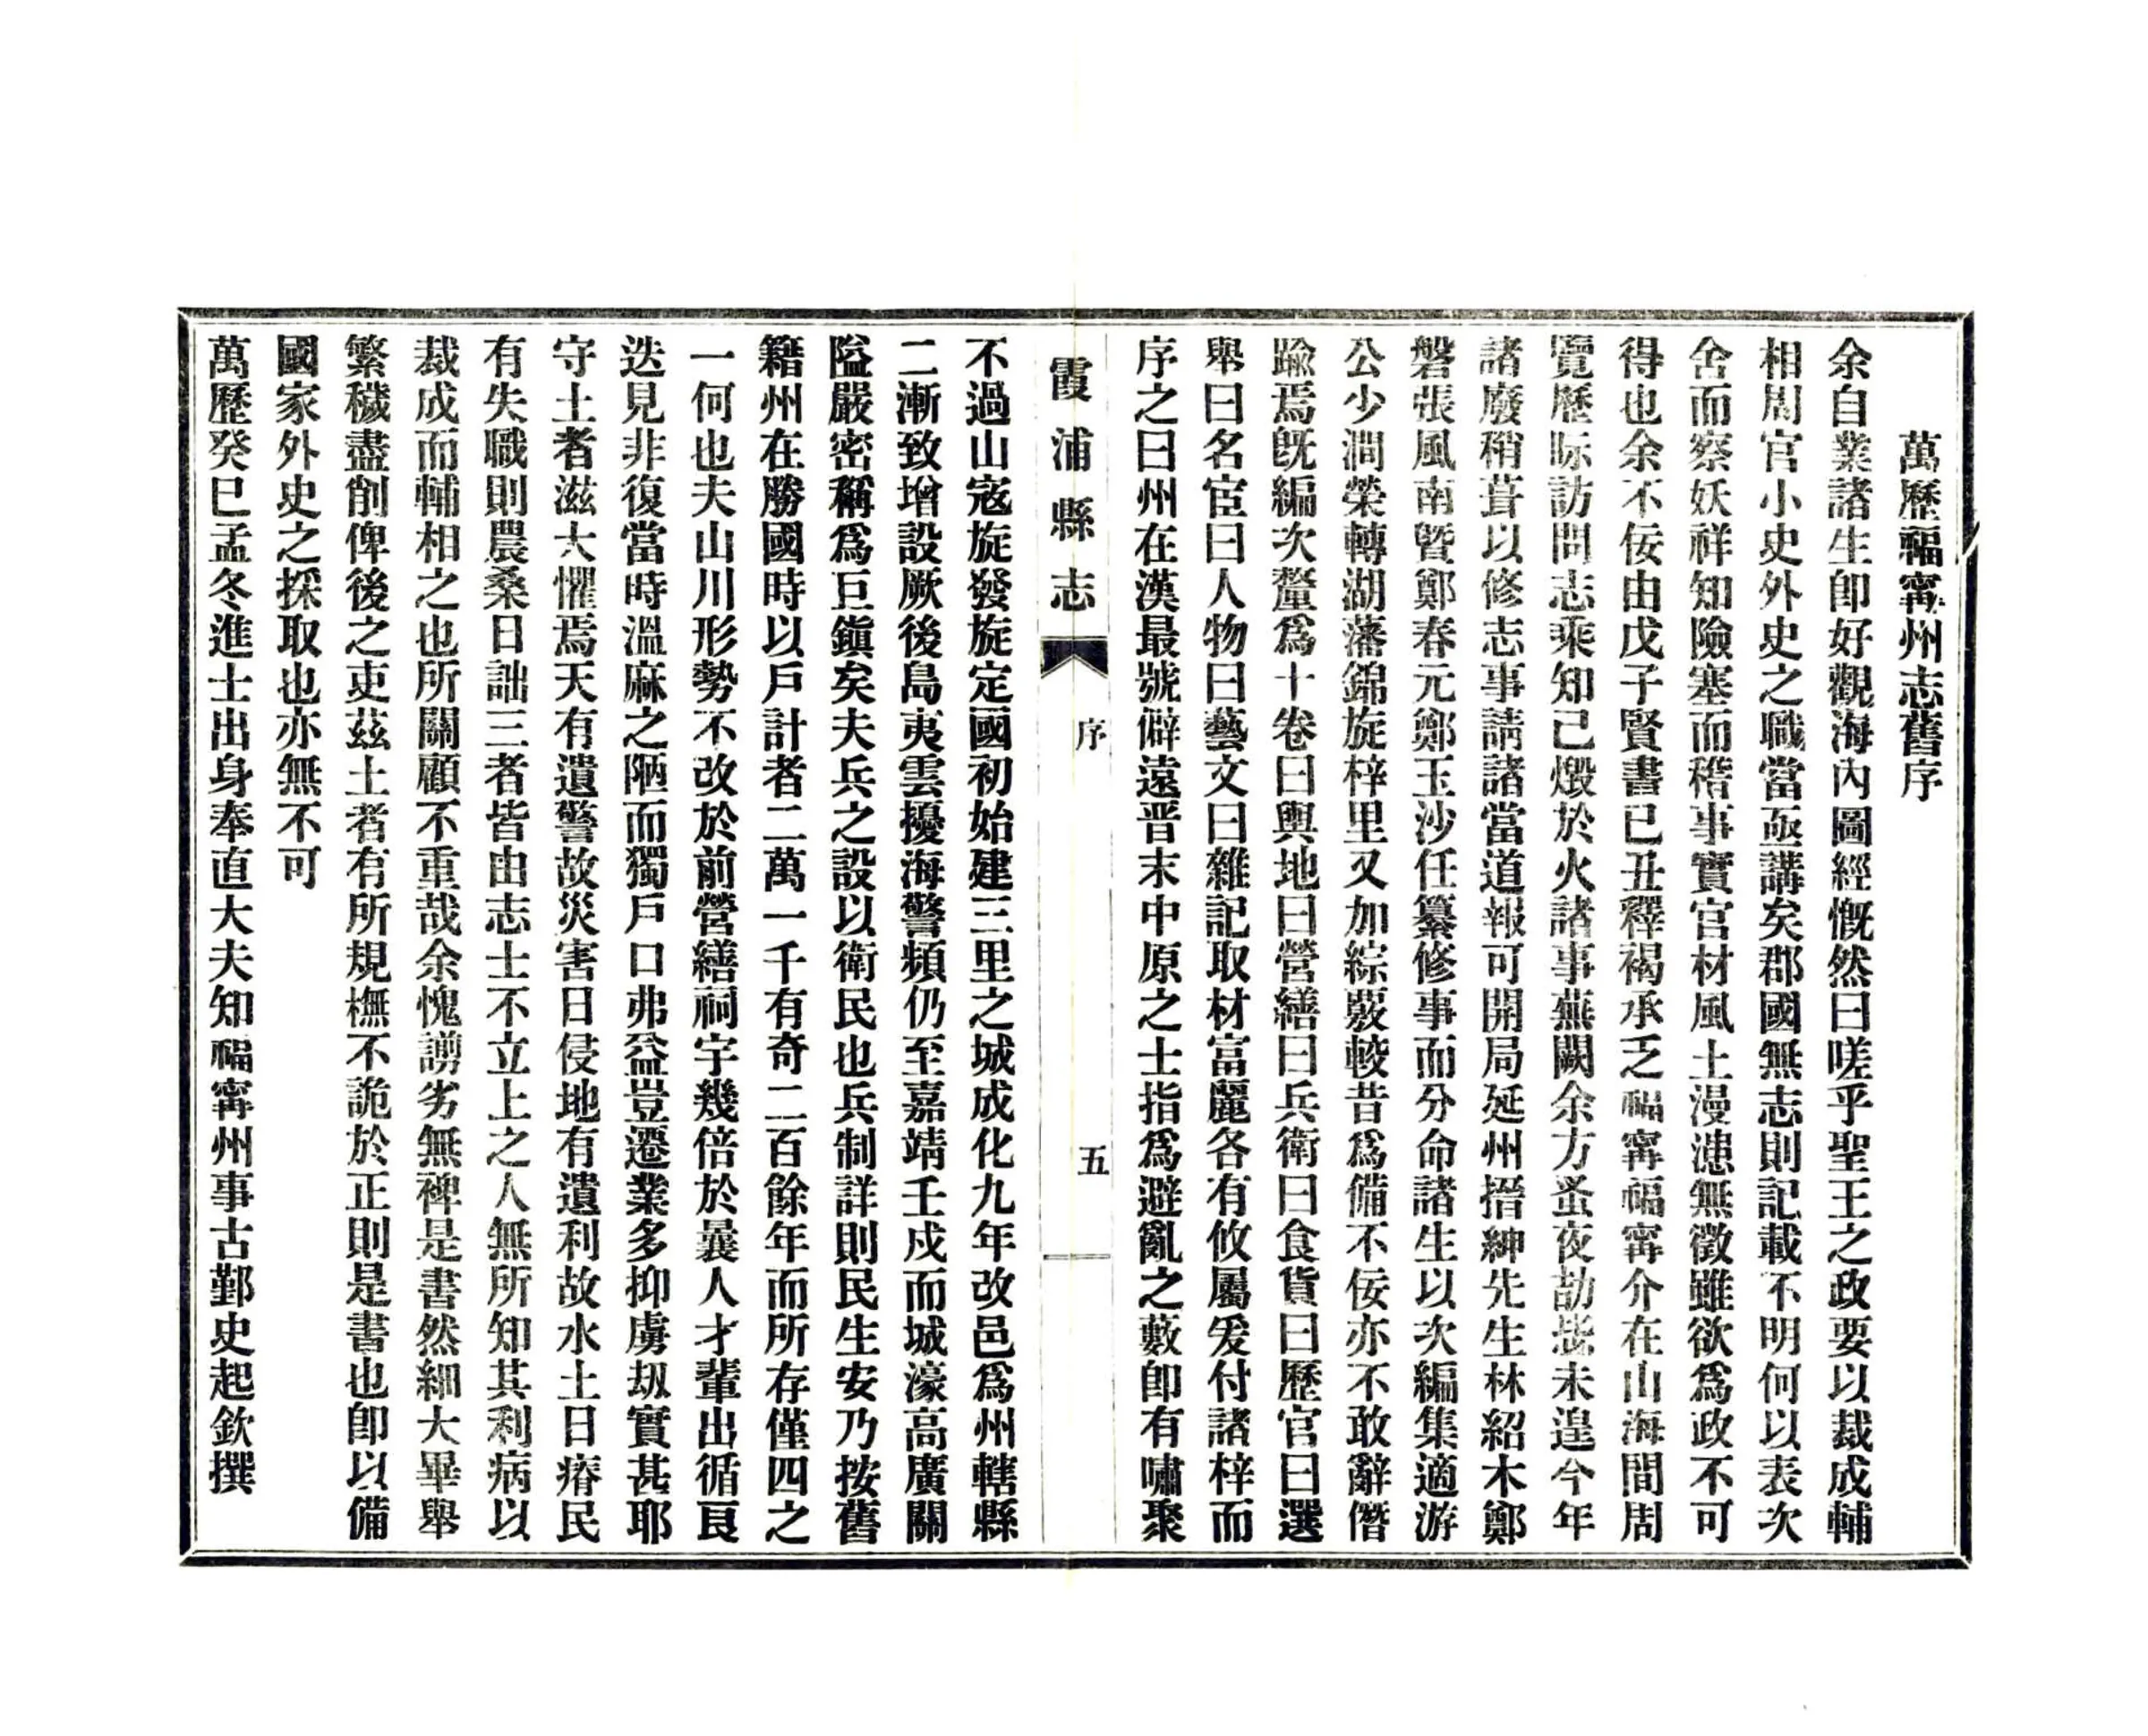 萬歷福甯州志舊序
余自業諸生卽好觀海內圖經慨然曰嗟乎聖王之政要以裁成輔
相周官小史外史之職當亟講矣郡國無志則記載不明何以表次
舍而察妖祥知險塞而稽事實官材風土漫漶無徵雖欲爲政不可
得也余不佞由戊子賢書已丑釋褐承乏福甯福甯介在山海間周
覽歷眎訪問志乘知己燬於火諸事蕪闕余方蚤夜劼毖未遑今年
諸廢稍葺以修志事請諸當道報可開局延州搢紳先生林紹木鄭
磐張風南暨鄭春元鄭玉沙任纂修事而分命諸生以次編集適游
公少澗榮轉湖藩錦旋梓里又加綜覈較昔爲備不佞亦不敢辭僭
踰焉旣編次釐爲十卷曰輿地曰營繕曰兵衛曰食貨曰歷官曰選
舉曰名宦曰人物曰藝文曰雜記取材富麗各有攸屬爰付諸梓而
序之曰州在漢最號僻遠晋末中原之士指爲避亂之藪卽有嘯聚
霞浦縣志
序
五
不過山寇旋發旋定國初始建三里之城成化九年改邑爲州轄縣
二漸致增設厥後島夷雲擾海警頻仍至嘉靖壬戍而城濠高廣關
隘嚴密稱爲巨鎭矣夫兵之設以衛民也兵制詳則民生安乃按舊
籍州在勝國時以戶計者二萬一千有奇二百餘年而所存僅四之
一何也夫山川形勢不改於前營繕祠宇幾倍於曩人才輩出循良
迭見非復當時溫麻之陋而獨戶口弗益豈遷業多抑虜刼實甚耶
守土者滋大懼焉天有遺警故災害日侵地有遺利故水土日瘠民
有失職則農桑日詘三者皆由志士不立上之人無所知其利病以
裁成而輔相之也所關顧不重哉余愧謭劣無裨是書然細大畢舉
繁穢盡削俾後之吏茲土者有所規橅不詭於正則是書也卽以備
國家外史之採取也亦無不可
萬歷癸巳孟冬進士出身奉直大夫知福甯州事古鄞史起欽撰